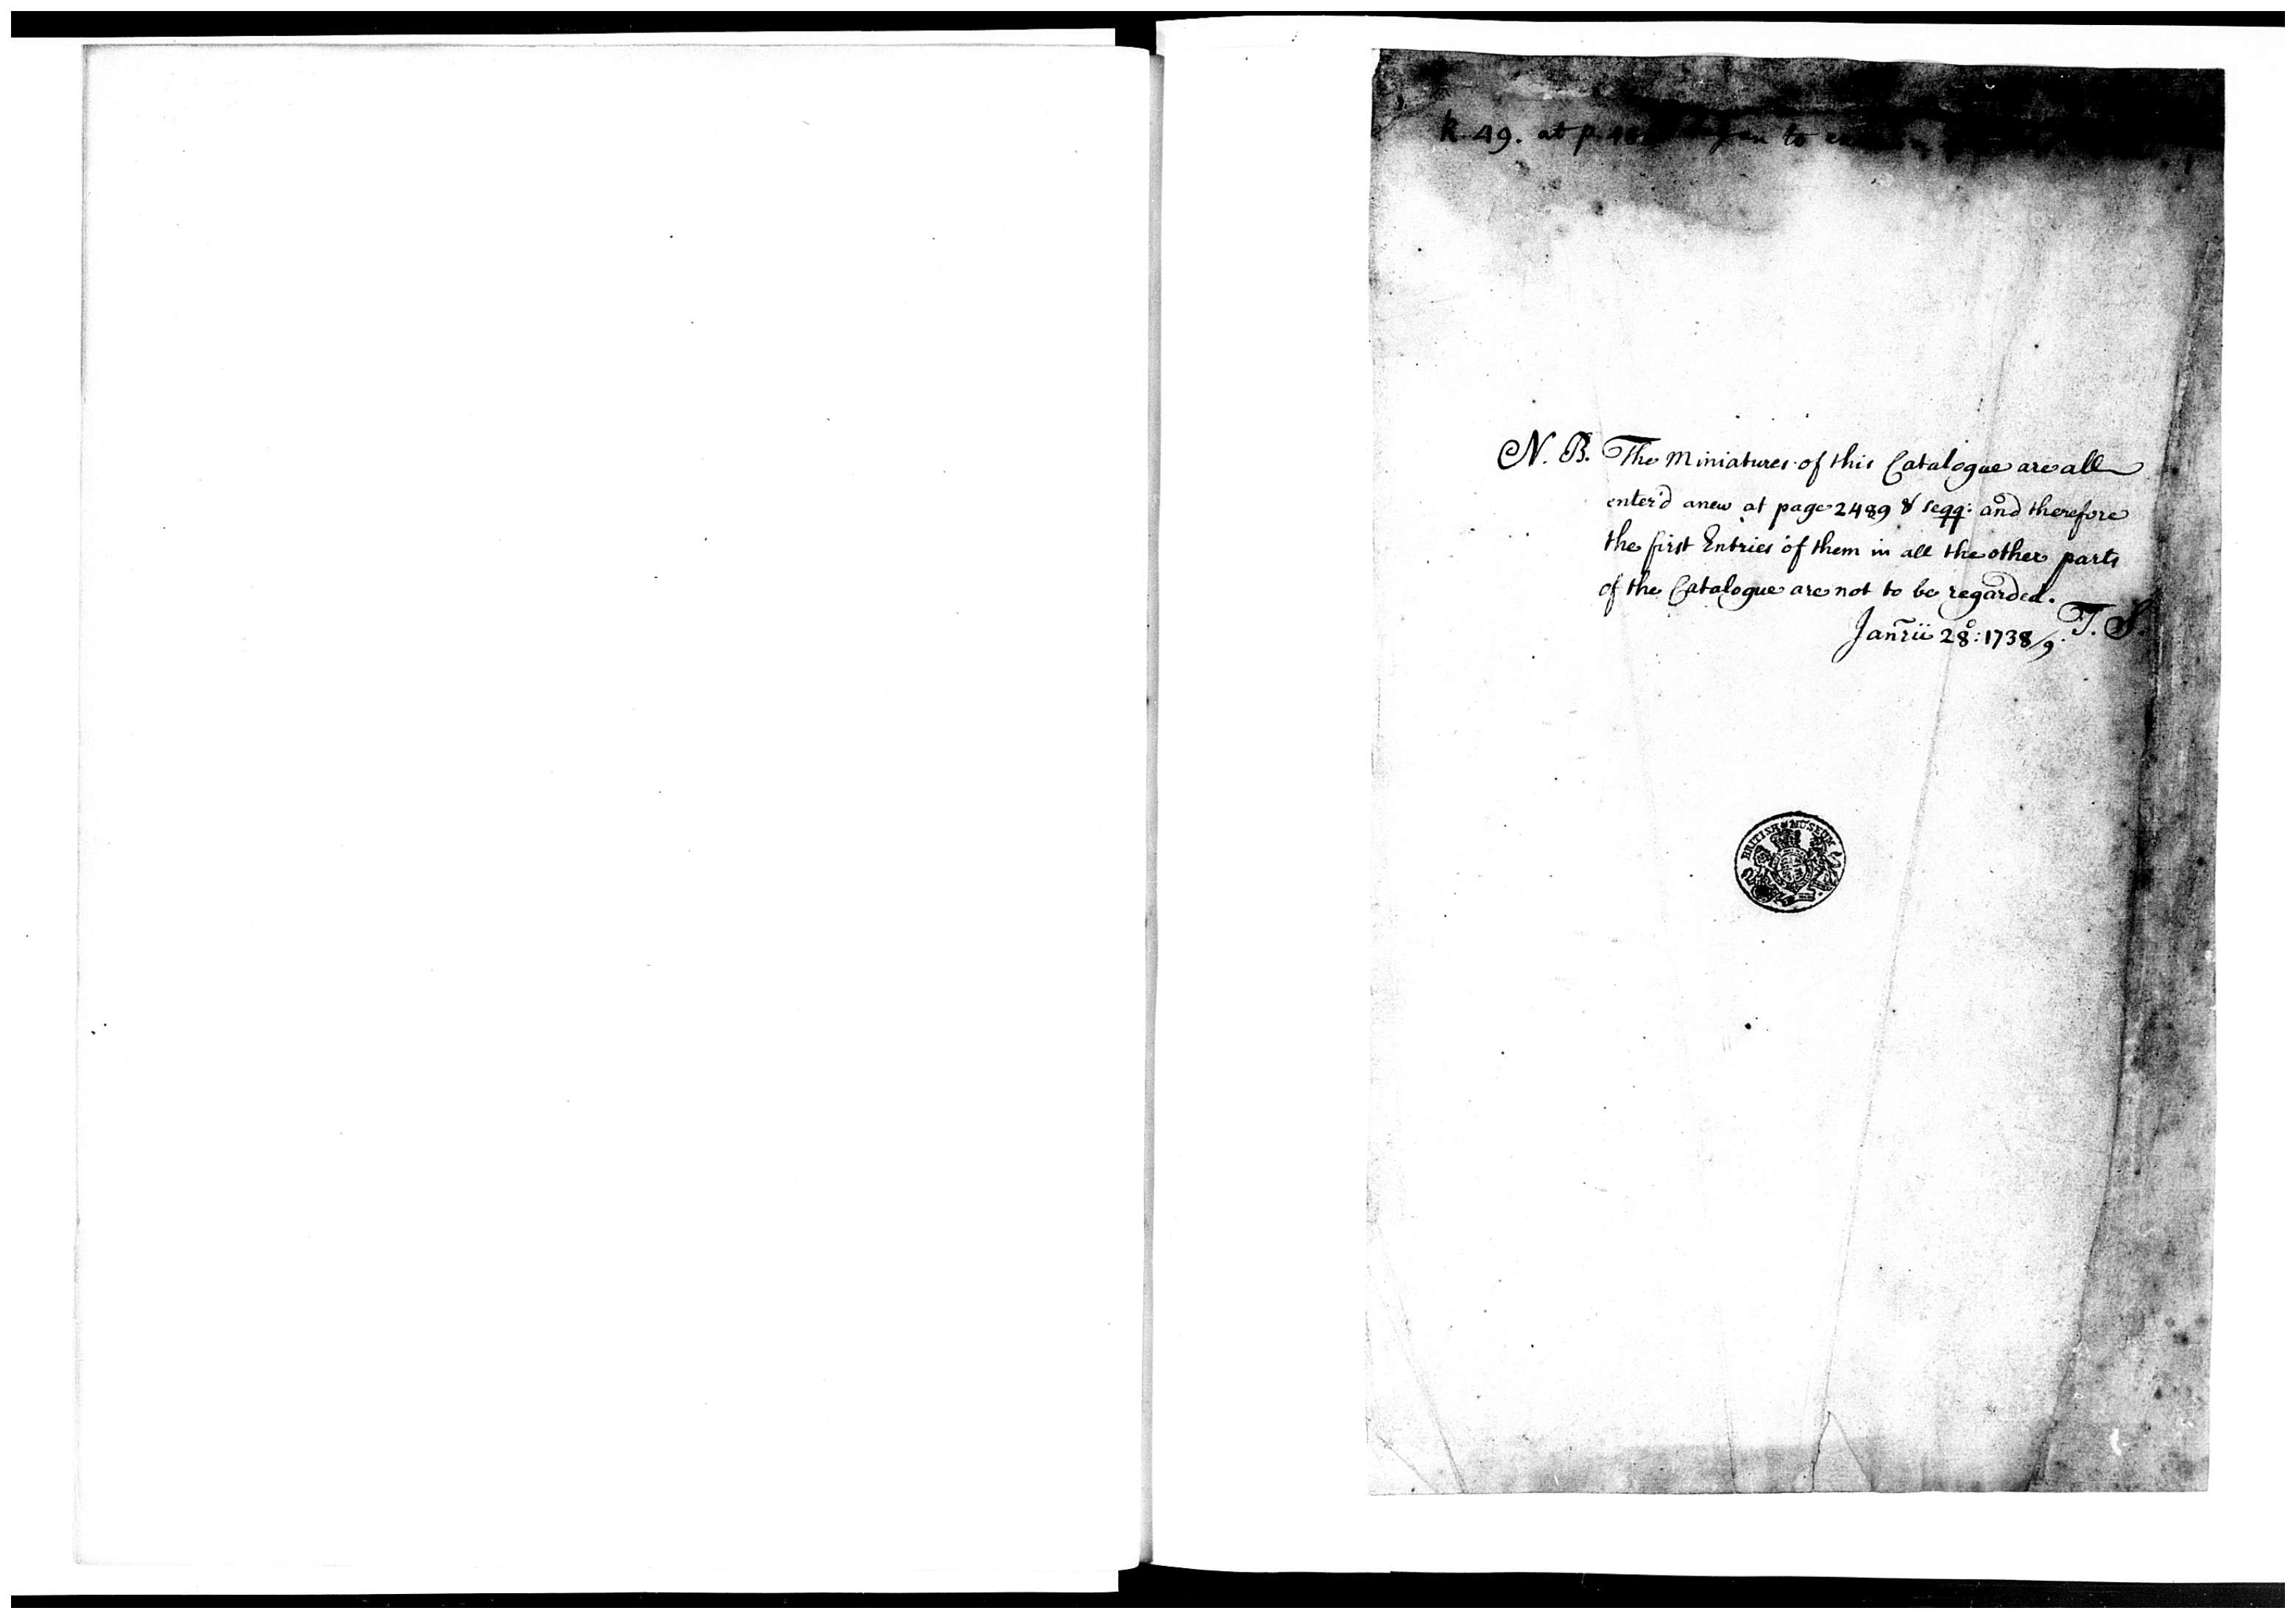 R. 49. at p. to
N. B. The Miniatures of this Catalogue are all
enter'd anew at page 2489 & seqq: and therefore
the first Entries of them in all the other parts
of the Catalogue are not to be regarded.
T. S.
Janrii 28º: 1738/9.
BRITISH MUSEUM